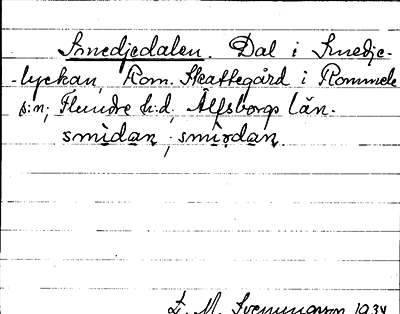 Smedjedalen. Dal i Smedje-
-lyckan, Rom. Skattegård i Rommele
s:n, Flundre h:d, Älfsborgs län.
smìdan, smìọdan.
E. M. Svenningsson 1934